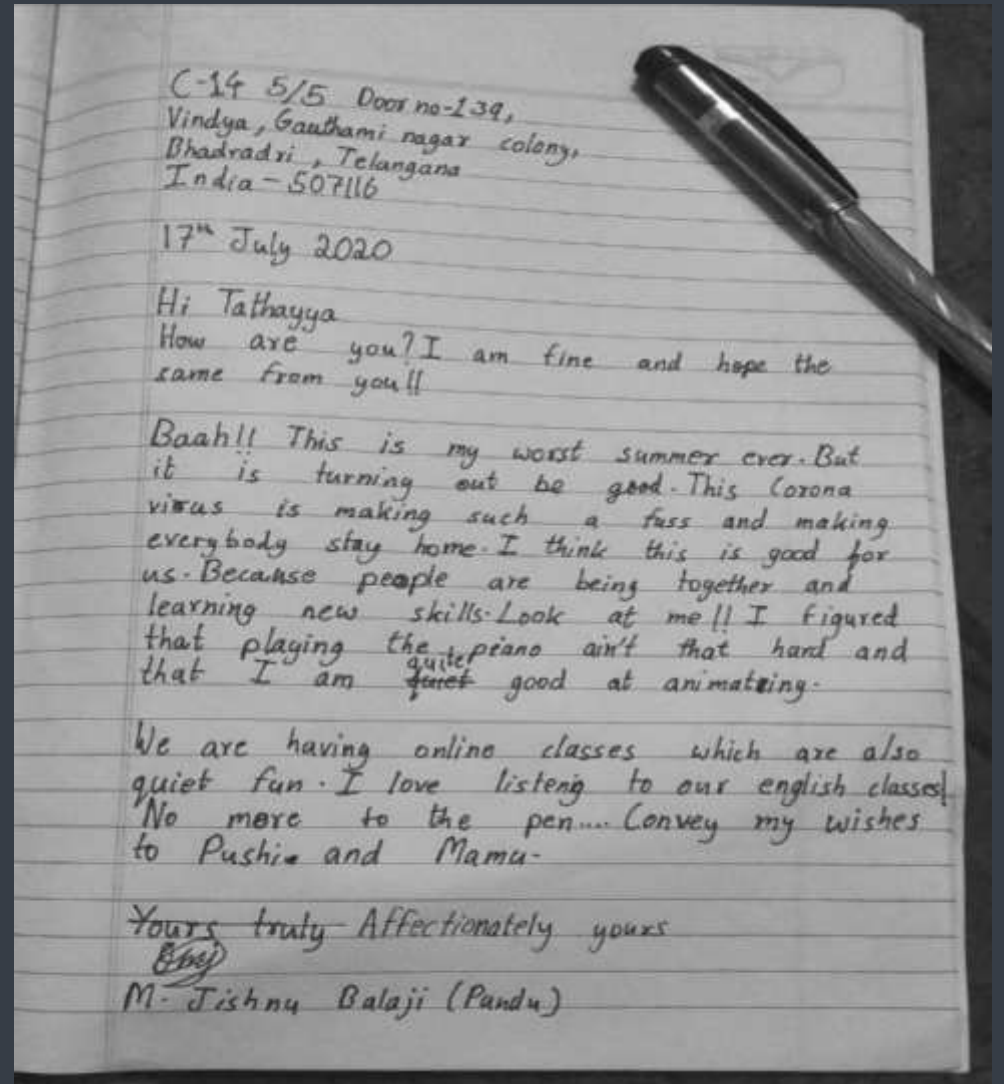 C-14 5/5 Door no-139,
Vindya, Gauthami nagar colony,
Bhadradri, Telangana
India - 507116
17th July 2020
Hi Tathayya
How are you? I am fine and hope the
same from you!!
Baah!! This is my worst summer ever. But
it is turning out be good. This Corona
virus is making such a fuss and making
everybody stay home. I think this is good for
us. Because people are being together and
learning new skills. Look at me!! I figured
that playing the piano ain't that hard and
that I am quite good at animating.
We are having online classes which are also
quiet fun. I love listeng to our english classes!
No more to the pen.... Convey my wishes
to Pushi and Mamu.
Yours truly Affectionately yours
M. Jishnu Balaji (Pandu)